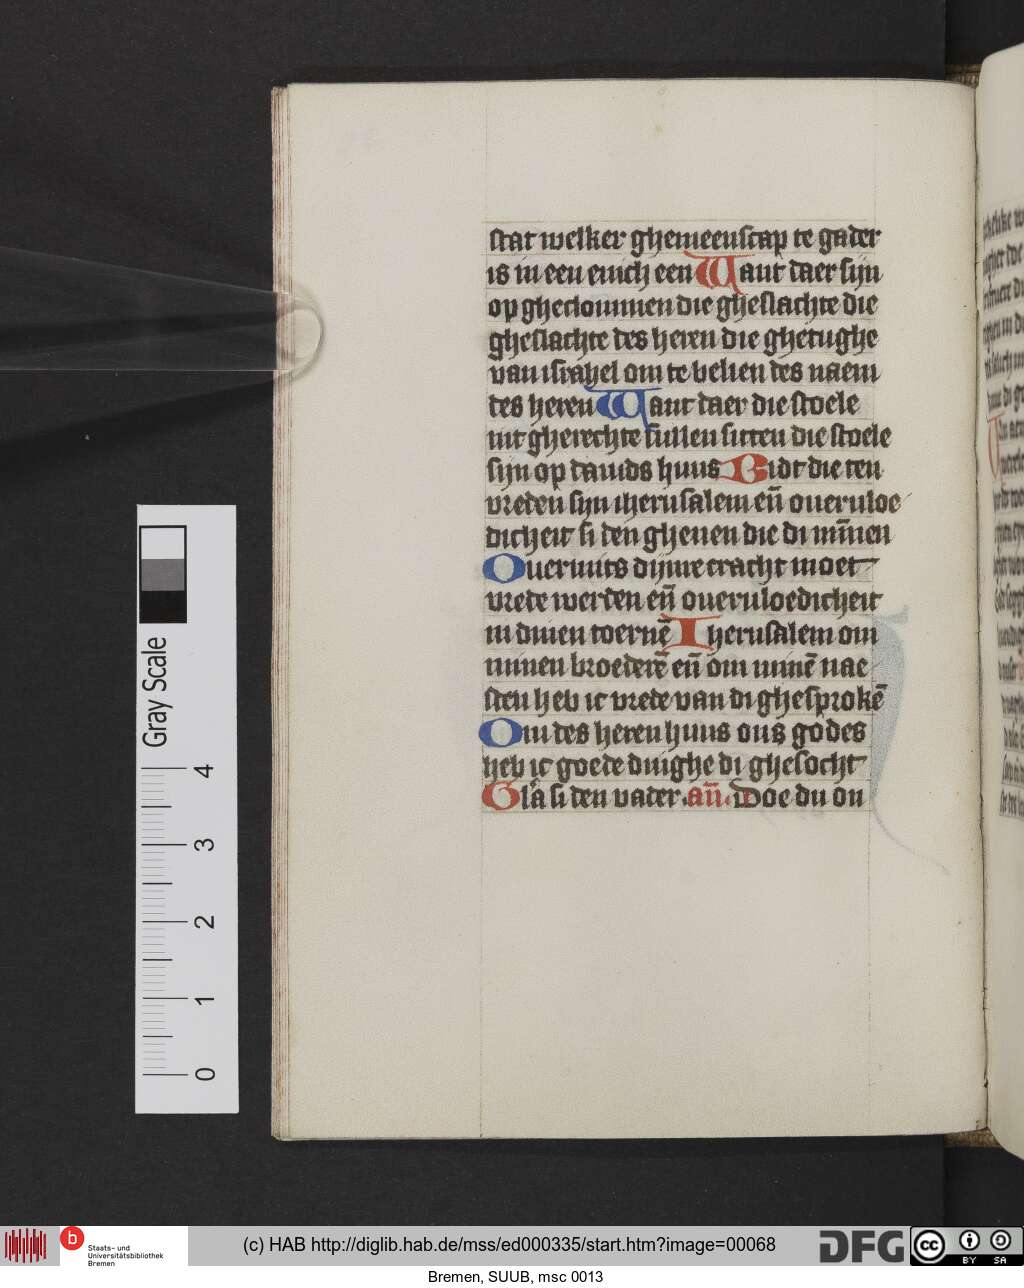 stat welker ghemeenscap te gader
is in een enich een Want daer sijn
op gheclommen die gheslachte die
gheslachte des heren die ghetughe
van israhel om te belien des naem
des heren Want daer die stoele
int gherechte sullen sitten die stoele
sijn op dauids huus Bidt die ten
vreden sijn iherusalem eñ oueruloe
dicheit si den ghenen die di miñen
Ouermits dijnre cracht moet
vrede werden eñ oueruloedicheit
in dinen toernē Iherusalem om
minen broederē eñ om minē nae
sten heb ic vrede van di ghesprokē
Om des heren huus ons godes
heb ic goede dinghe di ghesocht
Gla si den vader. an̄. Doe du on
Gray Scale
4
3
2
1
0
b
Staats- und
Universitätsbibliothek
Bremen
(c) HAB http://diglib.hab.de/mss/ed000335/start.htm?image=00068
DFG
cc
BY SA
Bremen, SUUB, msc 0013